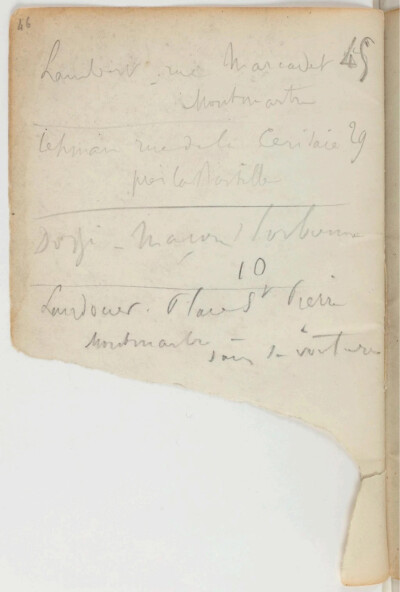 46
Lambert . rue Marcadet 45
Montmartre
Lehman rue de la Cerisaie 29
près la Bastille
Maçon Sorbonne
10
Landouer . Place St Pierre
Montmartre à